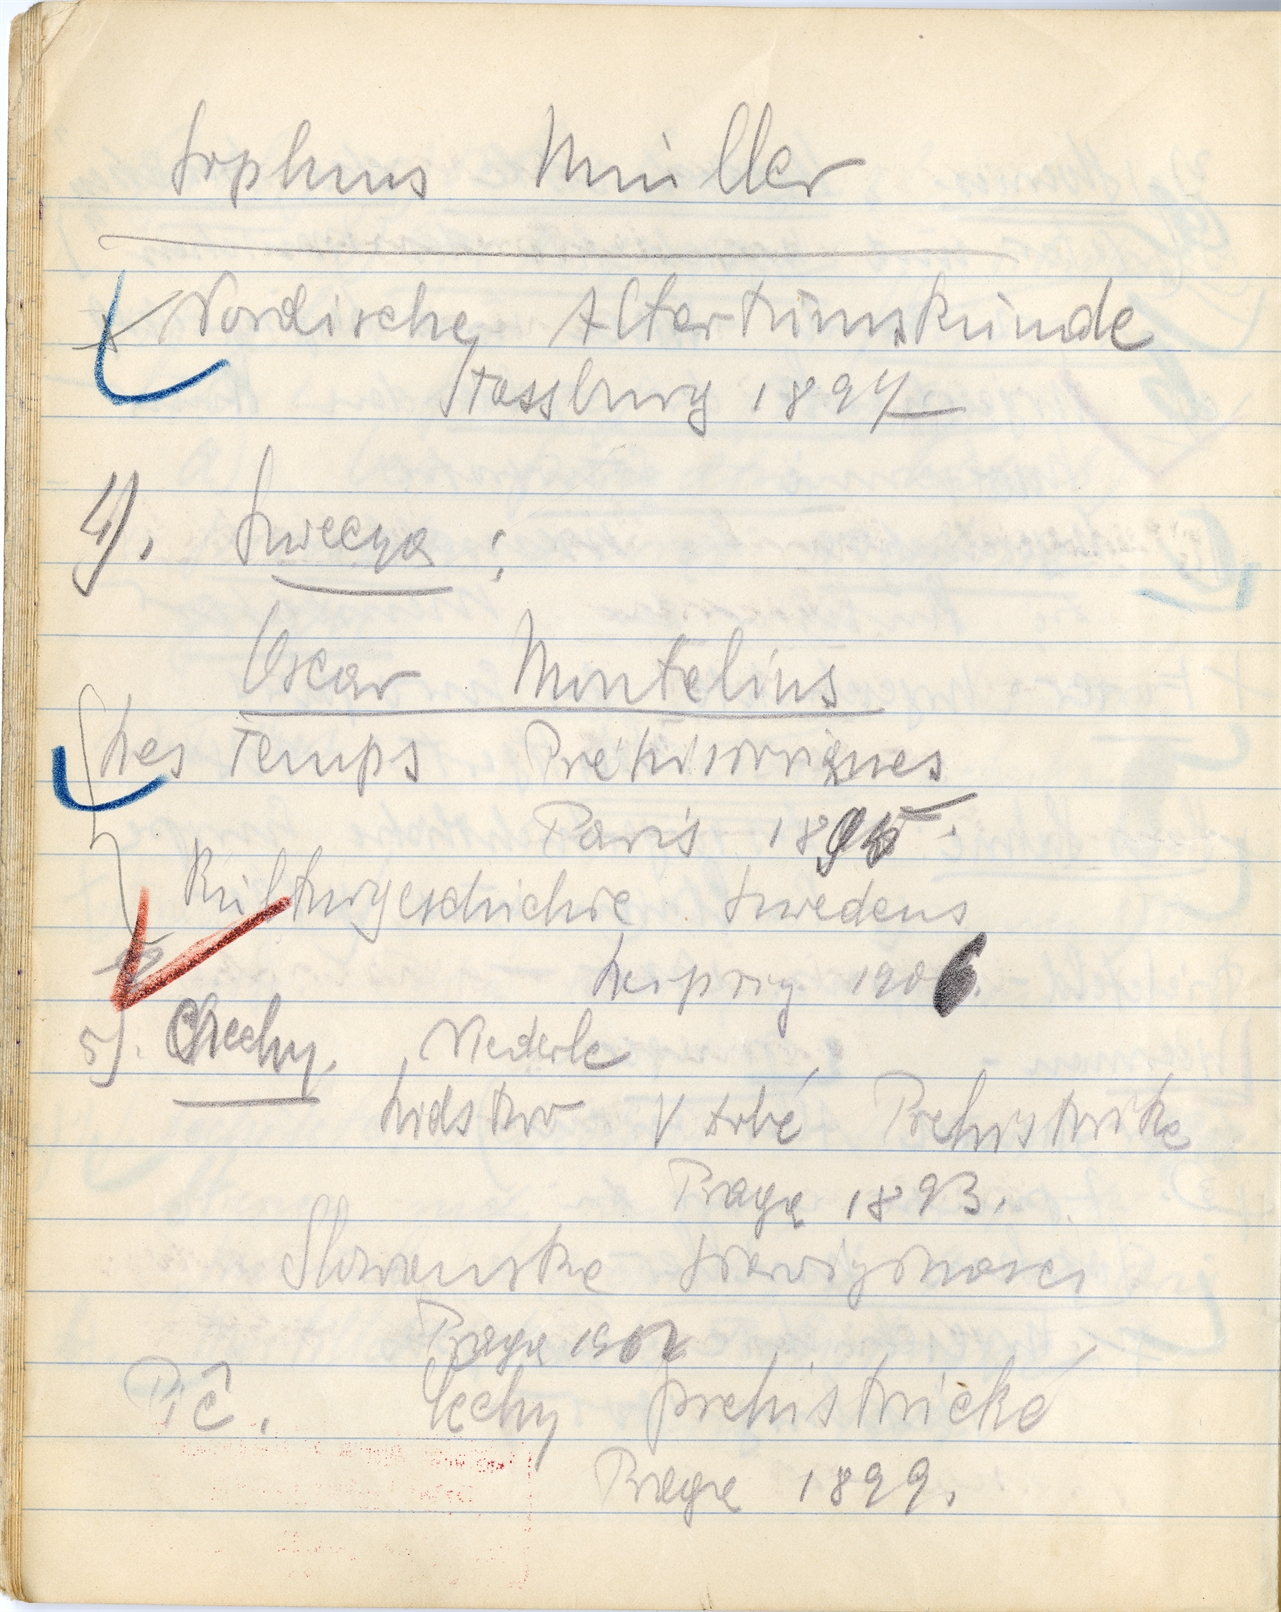 Sophus Müller
Nordische Altertumskunde
Stassburg 1897
4). Szwecya :
Oscar Montelius
Les Temps Préhistoriques
Paris 1895.
Kulturgeschichte Swedens
Leipzig 1906.
5). Czechy. Niederle
Lidstvo V dobé Prehistorické
Praga 1893.
Slowanské Starożytnosci
Praga 1902
Pič. Čechy prehistorické
Praga 1899.